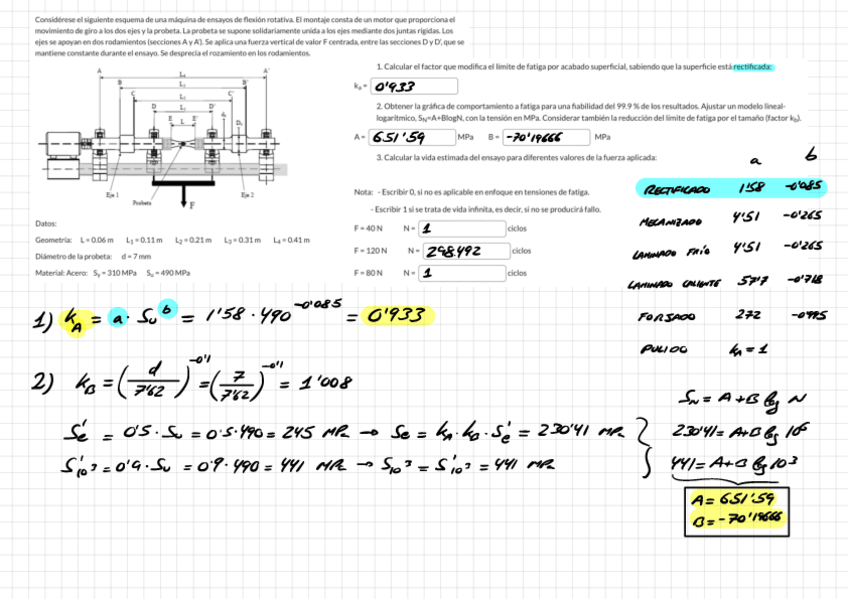 Considérese el siguiente esquema de una máquina de ensayos de flexión rotativa. El montaje consta de un motor que proporciona el
movimiento de giro a los dos ejes y la probeta. La probeta se supone solidariamente unida a los ejes mediante dos juntas rígidas. Los
ejes se apoyan en dos rodamientos (secciones A y A'). Se aplica una fuerza vertical de valor F centrada, entre las secciones D y D', que se
mantiene constante durante el ensayo. Se desprecia el rozamiento en los rodamientos.
1. Calcular el factor que modifica el límite de fatiga por acabado superficial, sabiendo que la superficie está rectificada:
kₐ = 0'933
2. Obtener la gráfica de comportamiento a fatiga para una fiabilidad del 99.9 % de los resultados. Ajustar un modelo lineal-
logarítmico, S_N=A+BlogN, con la tensión en MPa. Considerar también la reducción del límite de fatiga por el tamaño (factor k_b).
A = 651'59 MPa B = -70'19666 MPa
3. Calcular la vida estimada del ensayo para diferentes valores de la fuerza aplicada:
Nota: - Escribir 0, si no es aplicable en enfoque en tensiones de fatiga.
- Escribir 1 si se trata de vida infinita, es decir, si no se producirá fallo.
F = 40 N N = 1 ciclos
F = 120 N N = 298.492 ciclos
F = 80 N N = 1 ciclos
A A'
L₄
B B'
L₃
C C'
L₂
D L₁ D'
E L E'
Eje 1 Probeta F Eje 2
Datos:
Geometría: L = 0.06 m L₁ = 0.11 m L₂ = 0.21 m L₃ = 0.31 m L₄ = 0.41 m
Diámetro de la probeta: d = 7 mm
Material: Acero: S_y = 310 MPa S_u = 490 MPa
a b
RECTIFICADO 1'58 -0'085
MECANIZADO 4'51 -0'265
LAMINADO FRÍO 4'51 -0'265
LAMINADO CALIENTE 57'7 -0'718
FORJADO 272 -0'995
PULIDO kA = 1
1) kA = a · Su^b = 1'58 · 490^-0'085 = 0'933
2) kB = (d/7'62)^-0'1 = (7/7'62)^-0'1 = 1'008
Se' = 0'5 · Su = 0'5 · 490 = 245 MPa → Se = kA · kB · Se' = 230'41 MPa
S'10³ = 0'9 · Su = 0'9 · 490 = 441 MPa → S10³ = S'10³ = 441 MPa
SN = A + B lg N
230'41 = A + B lg 10⁶
441 = A + B lg 10³
A = 651'59
B = -70'19666